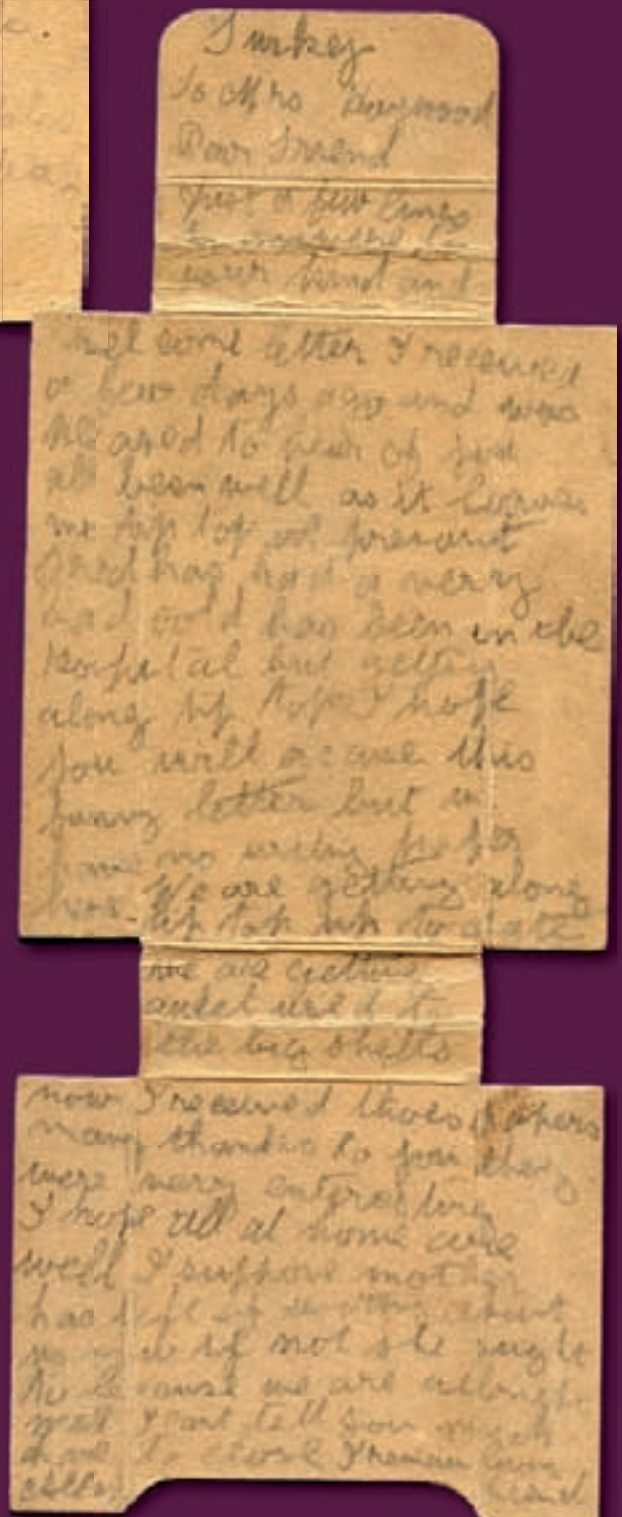 Turkey
To Mrs Haywood
Dear Friend
Just a few lines
to
your kind and
welcome letter I received
a few days ago and was
pleased to hear of you
all been well as it leaves
me tip top at present
Fred has had a very
bad cold has been in the
hospital but getting
along tip top I hope
you will excuse this
funny letter but we
have no writing paper
here. We are getting along
tip top up to date
we are getting
quiet used to
the big shells
now I received those papers
many thanks to you they
were very enteresting
I hope all at home are
well I suppose mother
has left off about
us now if not she ought
to because we are allright
well I cant tell you much
have to close I remain
friend